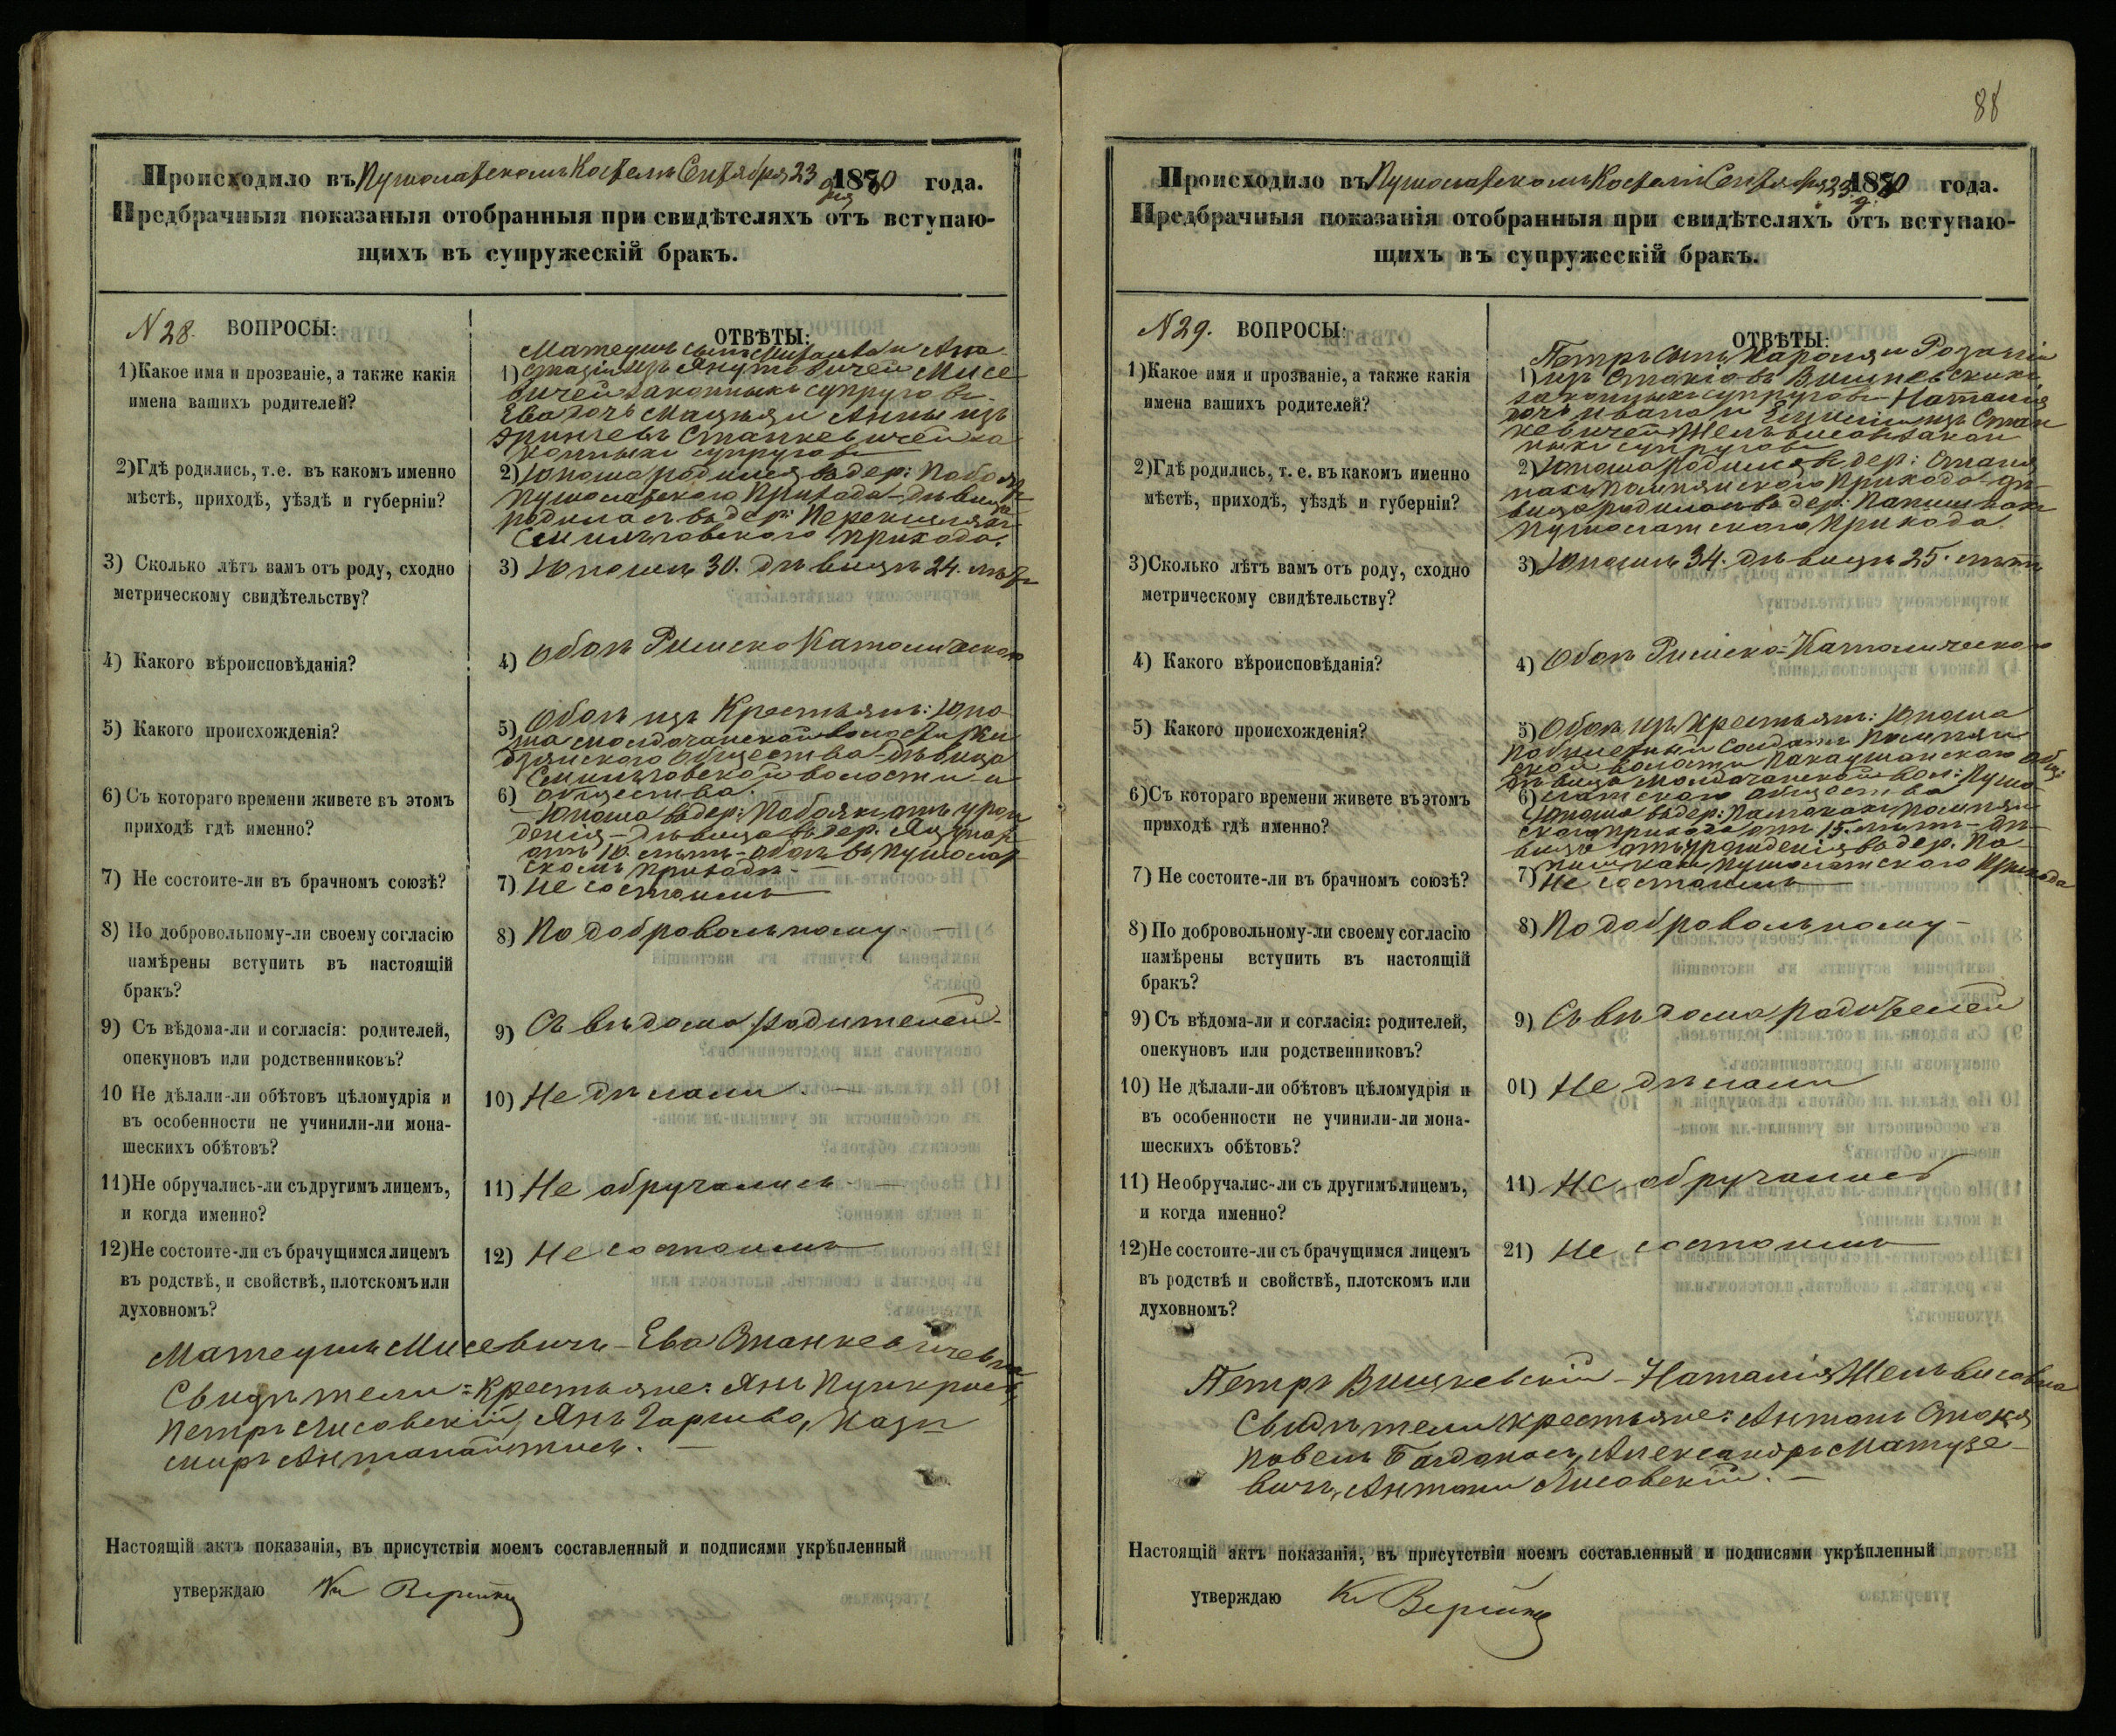 Происходило въ Пушолатскомъ Костелѣ Сентября 23 дня 1880 года.
Предбрачныя показаныя отобранныя при свидѣтеляхъ отъ вступаю-
щихъ въ супружескій бракъ.
N 28. ВОПРОСЫ:
1) Какое имя и прозваніе, а также какія
имена вашихъ родителей?
2) Гдѣ родились, т.е. въ какомъ именно
мѣстѣ, приходѣ, уѣздѣ и губерніи?
3) Сколько лѣтъ вамъ отъ роду, сходно
метрическому свидѣтельству?
4) Какого вѣроисповѣданія?
5) Какого происхожденія?
6) Съ котораго времени живете въ этомъ
приходѣ гдѣ именно?
7) Не состоите-ли въ брачномъ союзѣ?
8) По добровольному-ли своему согласію
намѣрены вступить въ настоящій
бракъ?
9) Съ вѣдома-ли и согласія: родителей,
опекуновъ или родственниковъ?
10 Не дѣлали-ли обѣтовъ цѣломудрія и
въ особенности не учинили-ли мона-
шескихъ обѣтовъ?
11) Не обручались-ли съ другимъ лицемъ,
и когда именно?
12) Не состоите-ли съ брачущимся лицемъ
въ родствѣ, и свойствѣ, плотскомъ или
духовномъ?
ОТВѢТЫ:
Матеушъ сынъ и Ана-
1) стазіи изъ Янутовичей Мисе
вичей законныхъ супруговъ.
Ева дочь и Анны изъ
Станкевичей за
конныхъ супруговъ
2) Юноша родился въ дер:
Пушолатского Прихода - дѣвица
родилась въ дер:
Прихода.
3) Юношѣ 30. дѣвицѣ 24. лѣтъ
4) Обоѣ Римско Католического
5) Обоѣ изъ Крестьянъ: Юно
ша волости
общества - дѣвица
волости и
6) общества.
Юноша въ дер: отъ урож
денія - дѣвица въ дер.
отъ 10. лѣтъ - обоѣ въ Пушолат
скомъ приходѣ -
7) Не состоимъ
8) По добровольному. —
9) Съ вѣдома родителей -
10) Не дѣлали. —
11) Не обручались. —
12) Не состоимъ
Матеушъ Мисевичъ - Ева Станкевичевна
Свидѣтели: Крестьяне: Янъ
Петръ Лисовскій, Янъ Кази
миръ —
Настоящій актъ показанія, въ присутствіи моемъ составленный и подписями укрѣпленный
утверждаю
88
Происходило въ Пушолатскомъ Костелѣ Сентября 23 д. 1880 года.
Предбрачныя показанія отобранныя при свидѣтеляхъ отъ вступаю-
щихъ въ супружескій бракъ.
N 29. ВОПРОСЫ:
1) Какое имя и прозваніе, а также какія
имена вашихъ родителей?
2) Гдѣ родились, т. е. въ какомъ именно
мѣстѣ, приходѣ, уѣздѣ и губерніи?
3) Сколько лѣтъ вамъ отъ роду, сходно
метрическому свидѣтельству?
4) Какого вѣроисповѣданія?
5) Какого происхожденія?
6) Съ котораго времени живете въ этомъ
приходѣ гдѣ именно?
7) Не состоите-ли въ брачномъ союзѣ?
8) По добровольному-ли своему согласію
намѣрены вступить въ настоящій
бракъ?
9) Съ вѣдома-ли и согласія: родителей,
опекуновъ или родственниковъ?
10) Не дѣлали-ли обѣтовъ цѣломудрія и
въ особенности не учинили-ли мона-
шескихъ обѣтовъ?
11) Не обручалис-ли съ другимъ лицемъ,
и когда именно?
12) Не состоите-ли съ брачущимся лицемъ
въ родствѣ и свойствѣ, плотскомъ или
духовномъ?
ОТВѢТЫ:
Петръ сынъ Кароля и Розаліи
1) изъ
законныхъ супруговъ - Наталія
дочь Ивана и изъ Стан
кевичей закон
ныхъ супруговъ
2) Юноша родился въ дер:
Прихода - дѣ-
вица родилась въ дер:
Пушолатского Прихода.
3) Юношѣ 34. дѣвицѣ 25. лѣтъ
4) Обоѣ Римско-Католического
5) Обоѣ изъ Крестьянъ: Юноша
солдатъ
волости общ:
дѣвица вол: Пушо
6) латского общества
Юноша въ дер:
прихода отъ 15. лѣтъ - дѣ-
вица отъ урожденія въ дер.
Пушолатского Прихода
7) Не состоимъ
8) По добровольному -
9) Съ вѣдома родителей
01) Не дѣлали
11) Не обручались
21) Не состоимъ
Петръ - Наталія
Свидѣтели крестьяне: Антонъ
Александръ Матузе-
вичъ, Антонъ Лисовскій. —
Настоящій актъ показанія, въ присутствіи моемъ составленный и подписями укрѣпленный
утверждаю